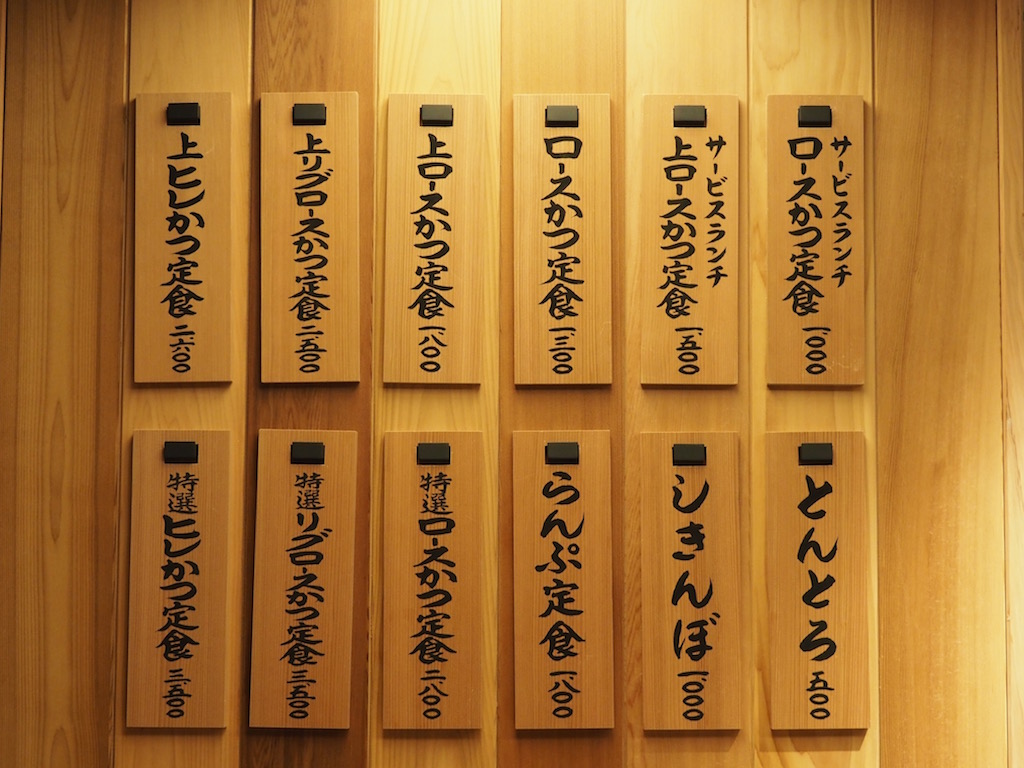 サービスランチ
ロースかつ定食 一、〇〇〇
サービスランチ
上ロースかつ定食 一、五〇〇
ロースかつ定食 一、三〇〇
上ロースかつ定食 一、八〇〇
上リブロースかつ定食 二、五〇〇
上ヒレかつ定食 二、六〇〇
とんとろ 五〇〇
しきんぼ 一、〇〇〇
らんぷ定食 一、八〇〇
特選ロースかつ定食 二、八〇〇
特選リブロースかつ定食 三、五〇〇
特選ヒレかつ定食 三、五〇〇